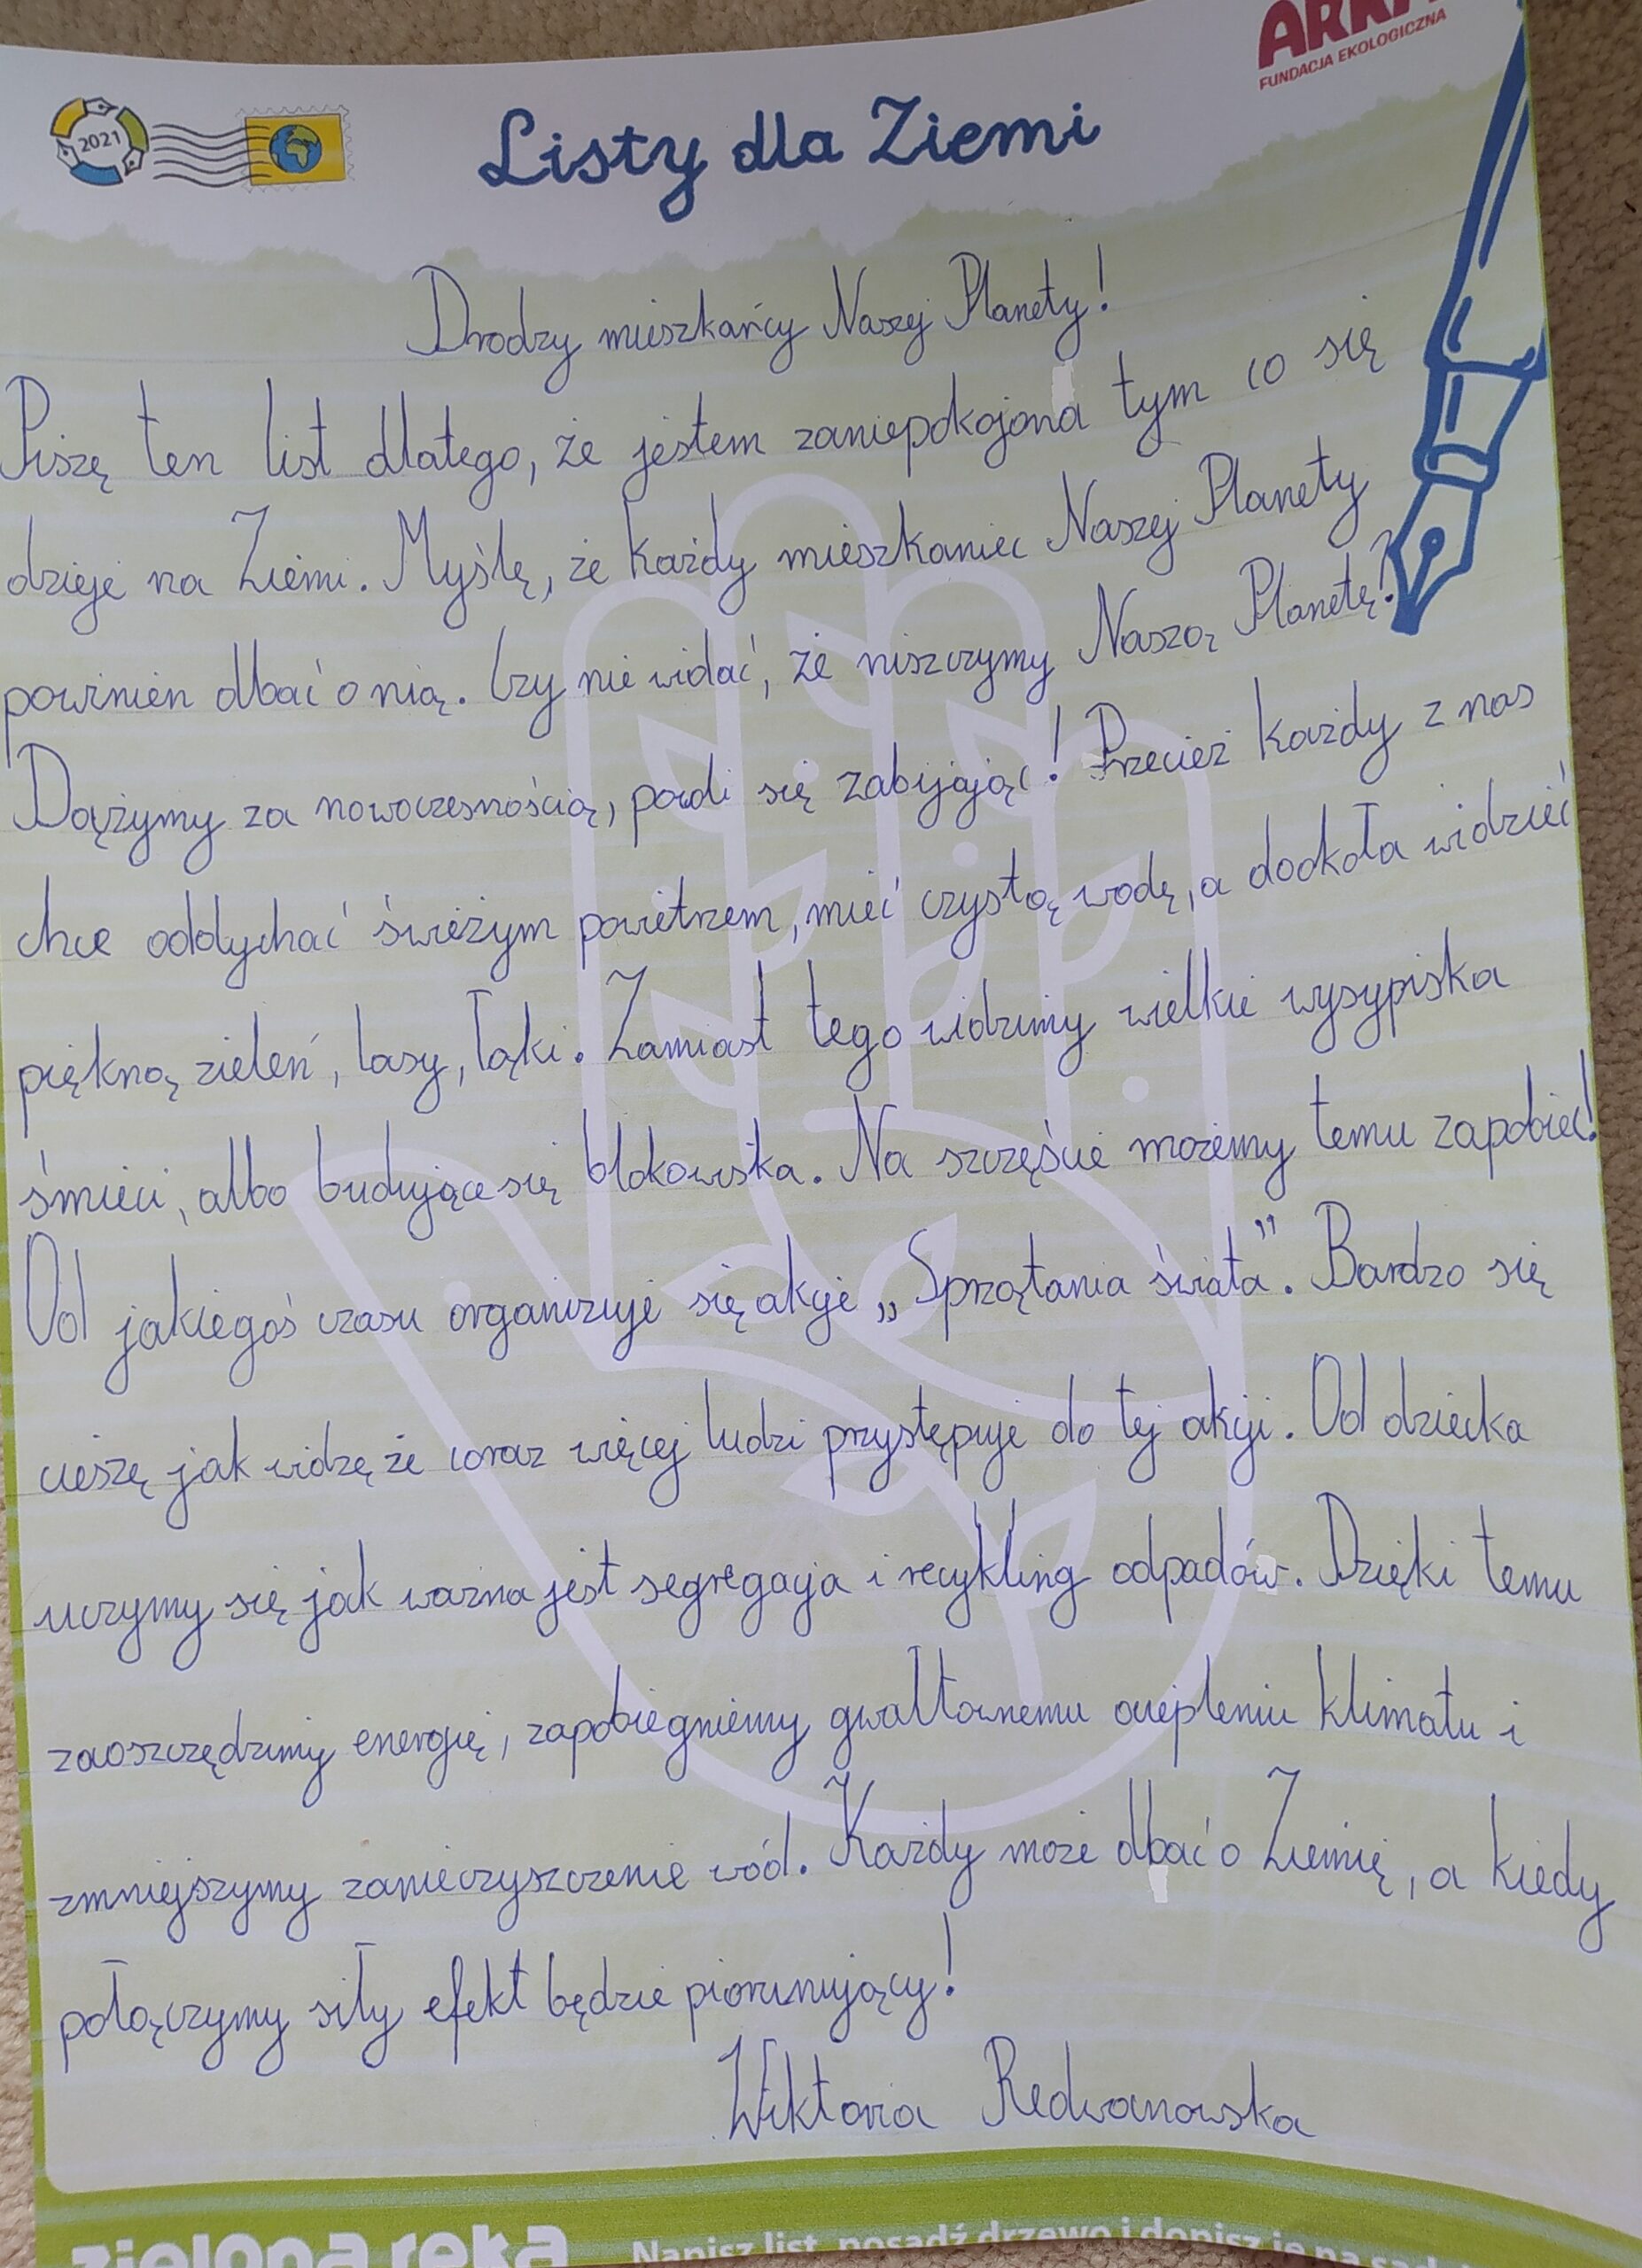 ARKA
FUNDACJA EKOLOGICZNA
2021
Listy dla Ziemi
Drodzy mieszkańcy Naszej Planety!
Piszę ten list dlatego, że jestem zaniepokojona tym co się
dzieje na Ziemi. Myślę, że każdy mieszkaniec Naszej Planety
powinien dbać o nią. Czy nie widać, że niszczymy Naszą Planetę?
Dążymy za nowoczesnością, powoli się zabijając! Przecież każdy z nas
chce oddychać świeżym powietrzem, mieć czystą wodę, a dookoła widzieć
piękną zieleń, lasy, łąki. Zamiast tego widzimy wielkie wysypiska
śmieci, albo budujące się blokowiska. Na szczęście możemy temu zapobiec!
Od jakiegoś czasu organizuje się akcje „Sprzątania świata”. Bardzo się
cieszę jak widzę że coraz więcej ludzi przystępuje do tej akcji. Od dziecka
uczymy się jak ważna jest segregacja i recykling odpadów. Dzięki temu
zaoszczędzimy energię, zapobiegniemy gwałtownemu ociepleniu klimatu i
zmniejszymy zanieczyszczenie wód. Każdy może dbać o Ziemię, a kiedy
połączymy siły efekt będzie piorunujący!
Wiktoria Redwanowska
zielona ręka Napisz list, posadź drzewo i dopisz je na